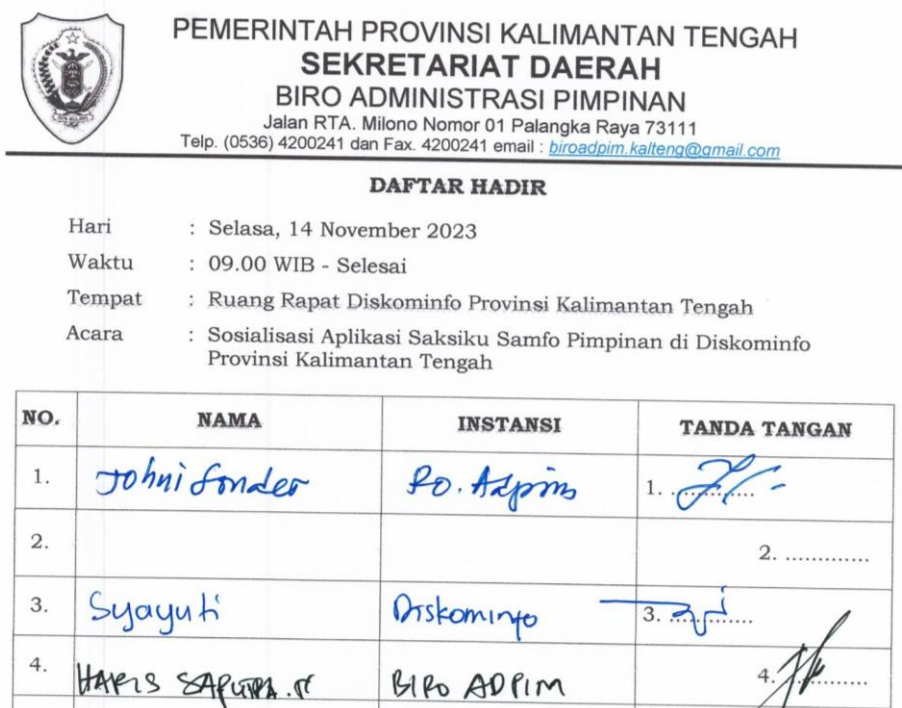 PEMERINTAH PROVINSI KALIMANTAN TENGAH
SEKRETARIAT DAERAH
BIRO ADMINISTRASI PIMPINAN
Jalan RTA. Milono Nomor 01 Palangka Raya 73111
Telp. (0536) 4200241 dan Fax. 4200241 email : biroadpim.kalteng@gmail.com
DAFTAR HADIR
Hari : Selasa, 14 November 2023
Waktu : 09.00 WIB - Selesai
Tempat : Ruang Rapat Diskominfo Provinsi Kalimantan Tengah
Acara : Sosialisasi Aplikasi Saksiku Samfo Pimpinan di Diskominfo
Provinsi Kalimantan Tengah
NO. NAMA INSTANSI TANDA TANGAN
1. Johni Sonder Ro. Adpim 1. .............
2. 2. .............
3. Syayuti Diskominfo 3. .............
4. HARIS SAPUTRA BIRO ADPIM 4. .............